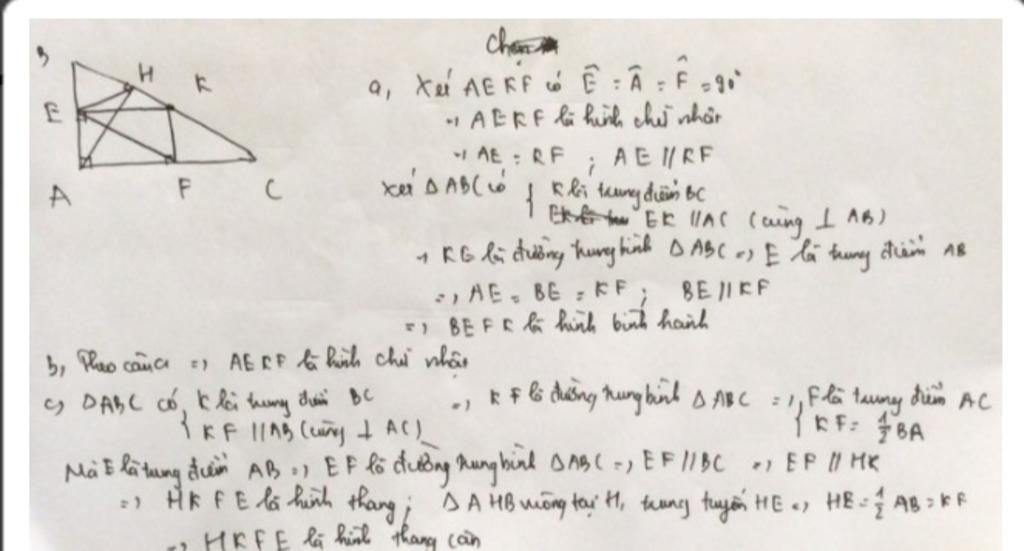 B
H
K
E
A
F
C
a, Xét AEKF có Ê = Â = F̂ = 90°
→ AEKF là hình chữ nhật
→ AE = KF ; AE // KF
Xét ΔABC có { K là trung điểm BC
EK // AC (cùng ⊥ AB)
→ KE là đường trung bình ΔABC => E là trung điểm AB
=> AE = BE = KF ; BE // KF
=> BEFK là hình bình hành
b, Theo câu a => AEKF là hình chữ nhật
c, ΔABC có { K là trung điểm BC => KF là đường trung bình ΔABC => { F là trung điểm AC
KF // AB (cùng ⊥ AC) KF = 1/2 BA
Mà E là trung điểm AB => EF là đường trung bình ΔABC => EF // BC => EF // HK
=> HKFE là hình thang ; ΔAHB vuông tại H, trung tuyến HE => HE = 1/2 AB = KF
=> HKFE là hình thang cân